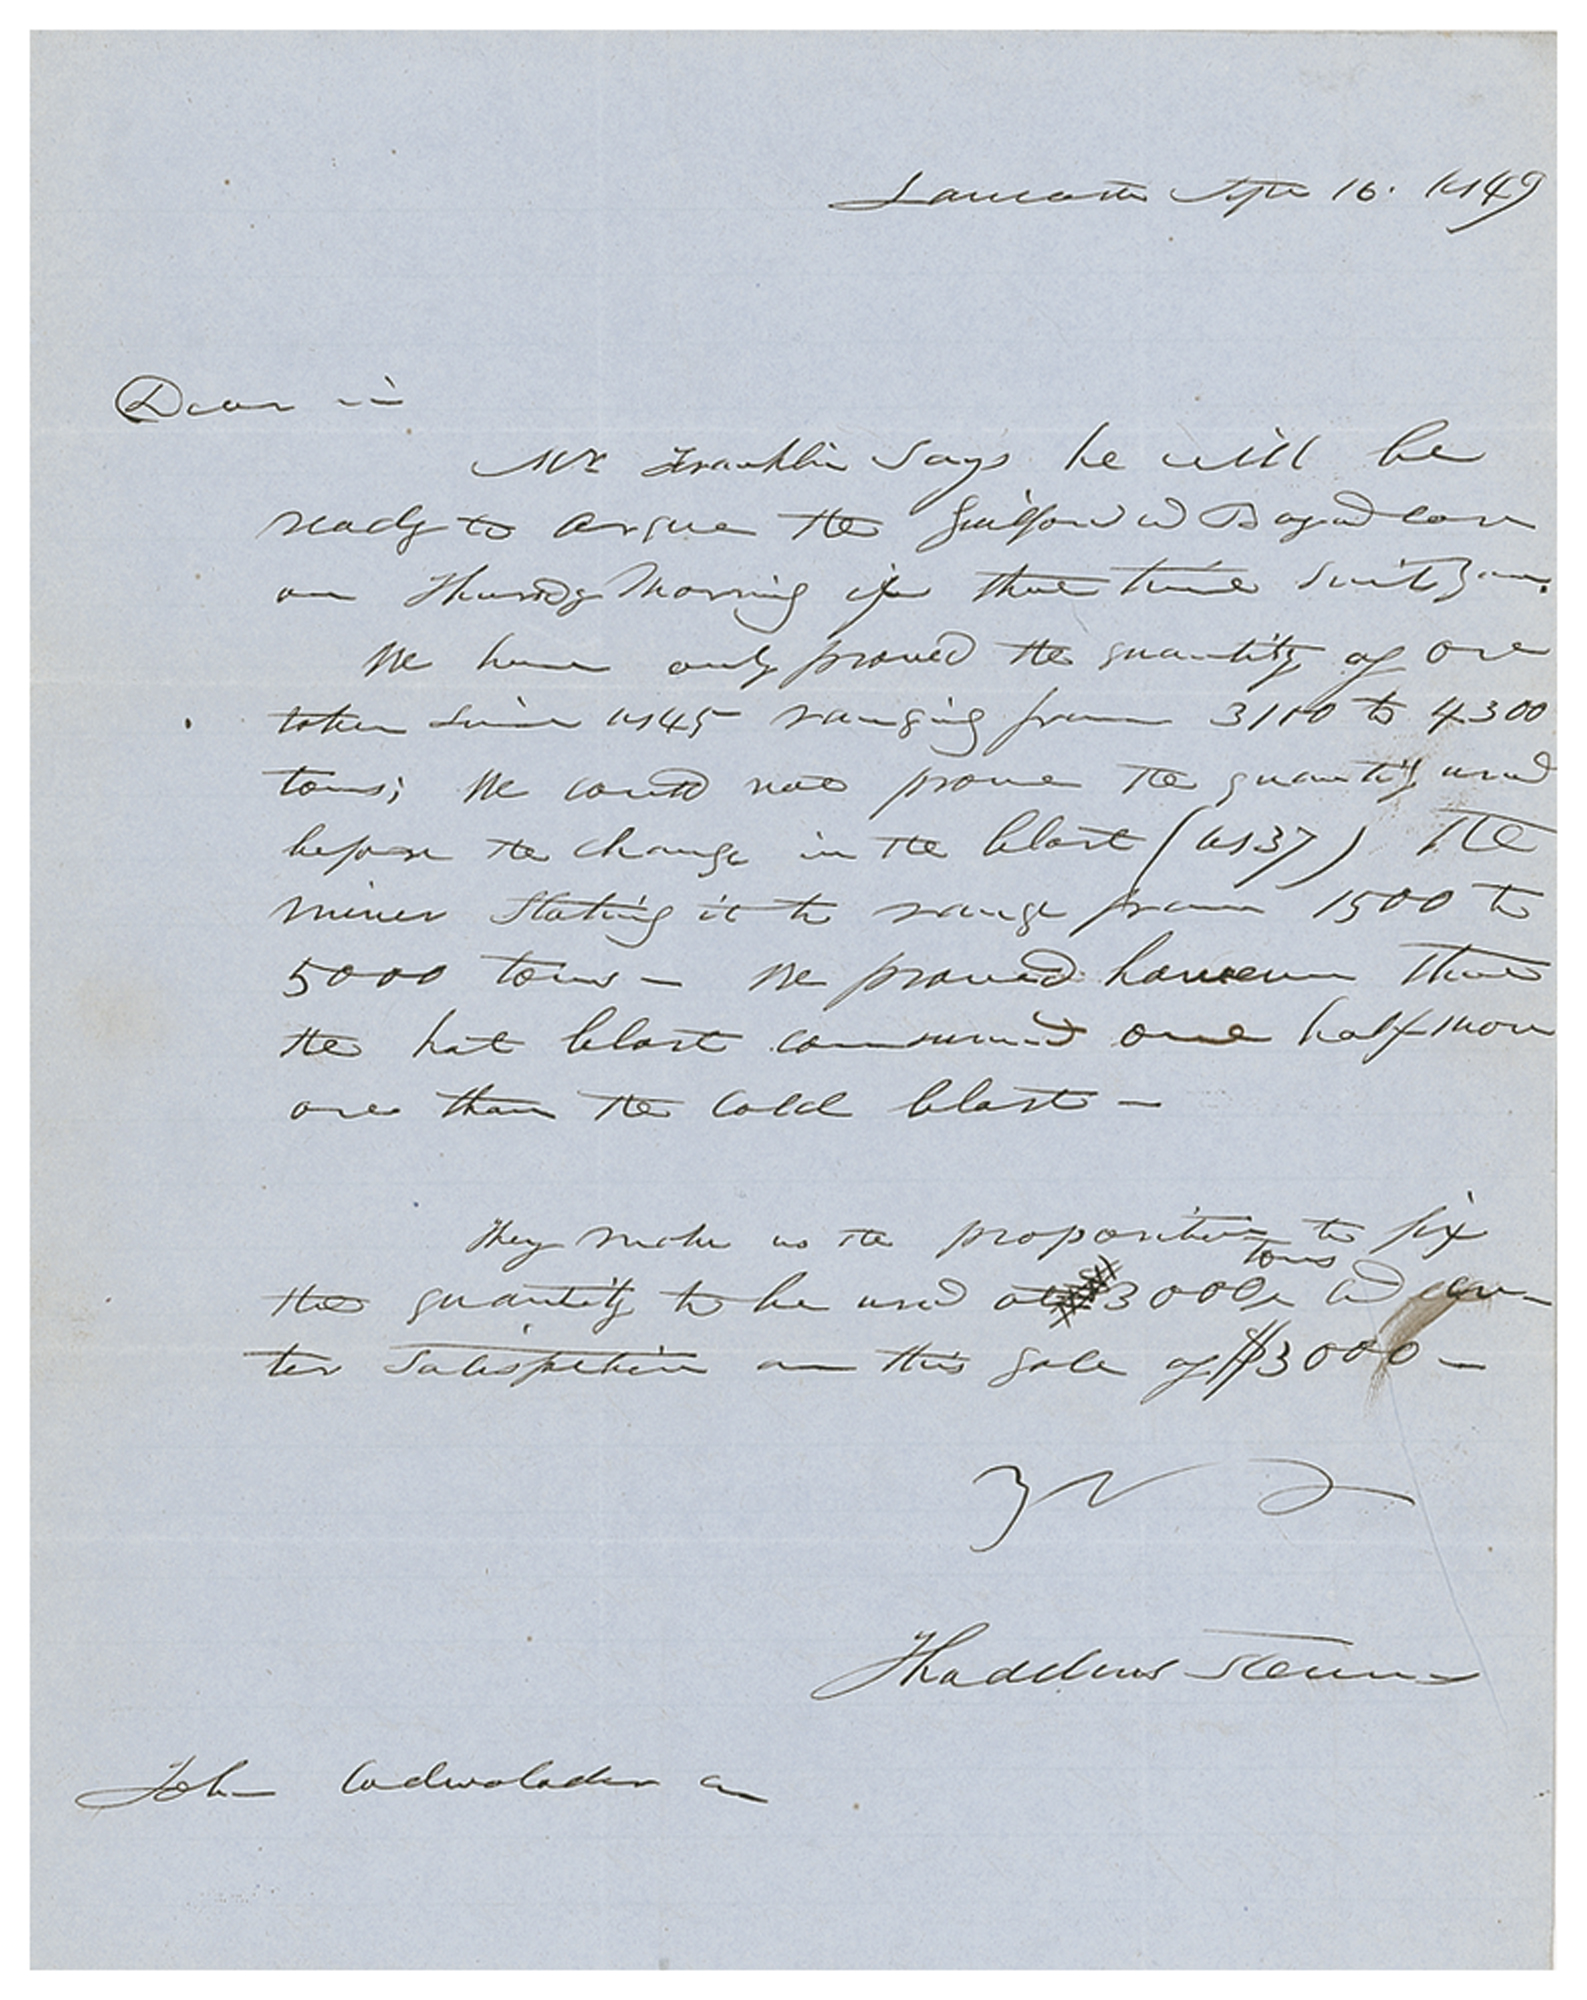 Lancaster 16. 1849
Dear Sir
Mr Franklin Says he will be
ready to argue the case
on Thursdy Morning if that time Suits you.
We have only proved the quantity of ore
taken Since 1845 ranging from 3100 to 4300
tons; We could not prove the quantity used
before the change in the blast (1837) The
miner Stating it to range from 1500 to
5000 tons — We proved however that
the hot blast consumed one half more
ore than the Cold blast —
They make us the proposition to fix
tons
the quantity to be used at 3000 en-
ter Satisfaction on this of $3000 —
Thaddeus Stevens
John Cadwalader